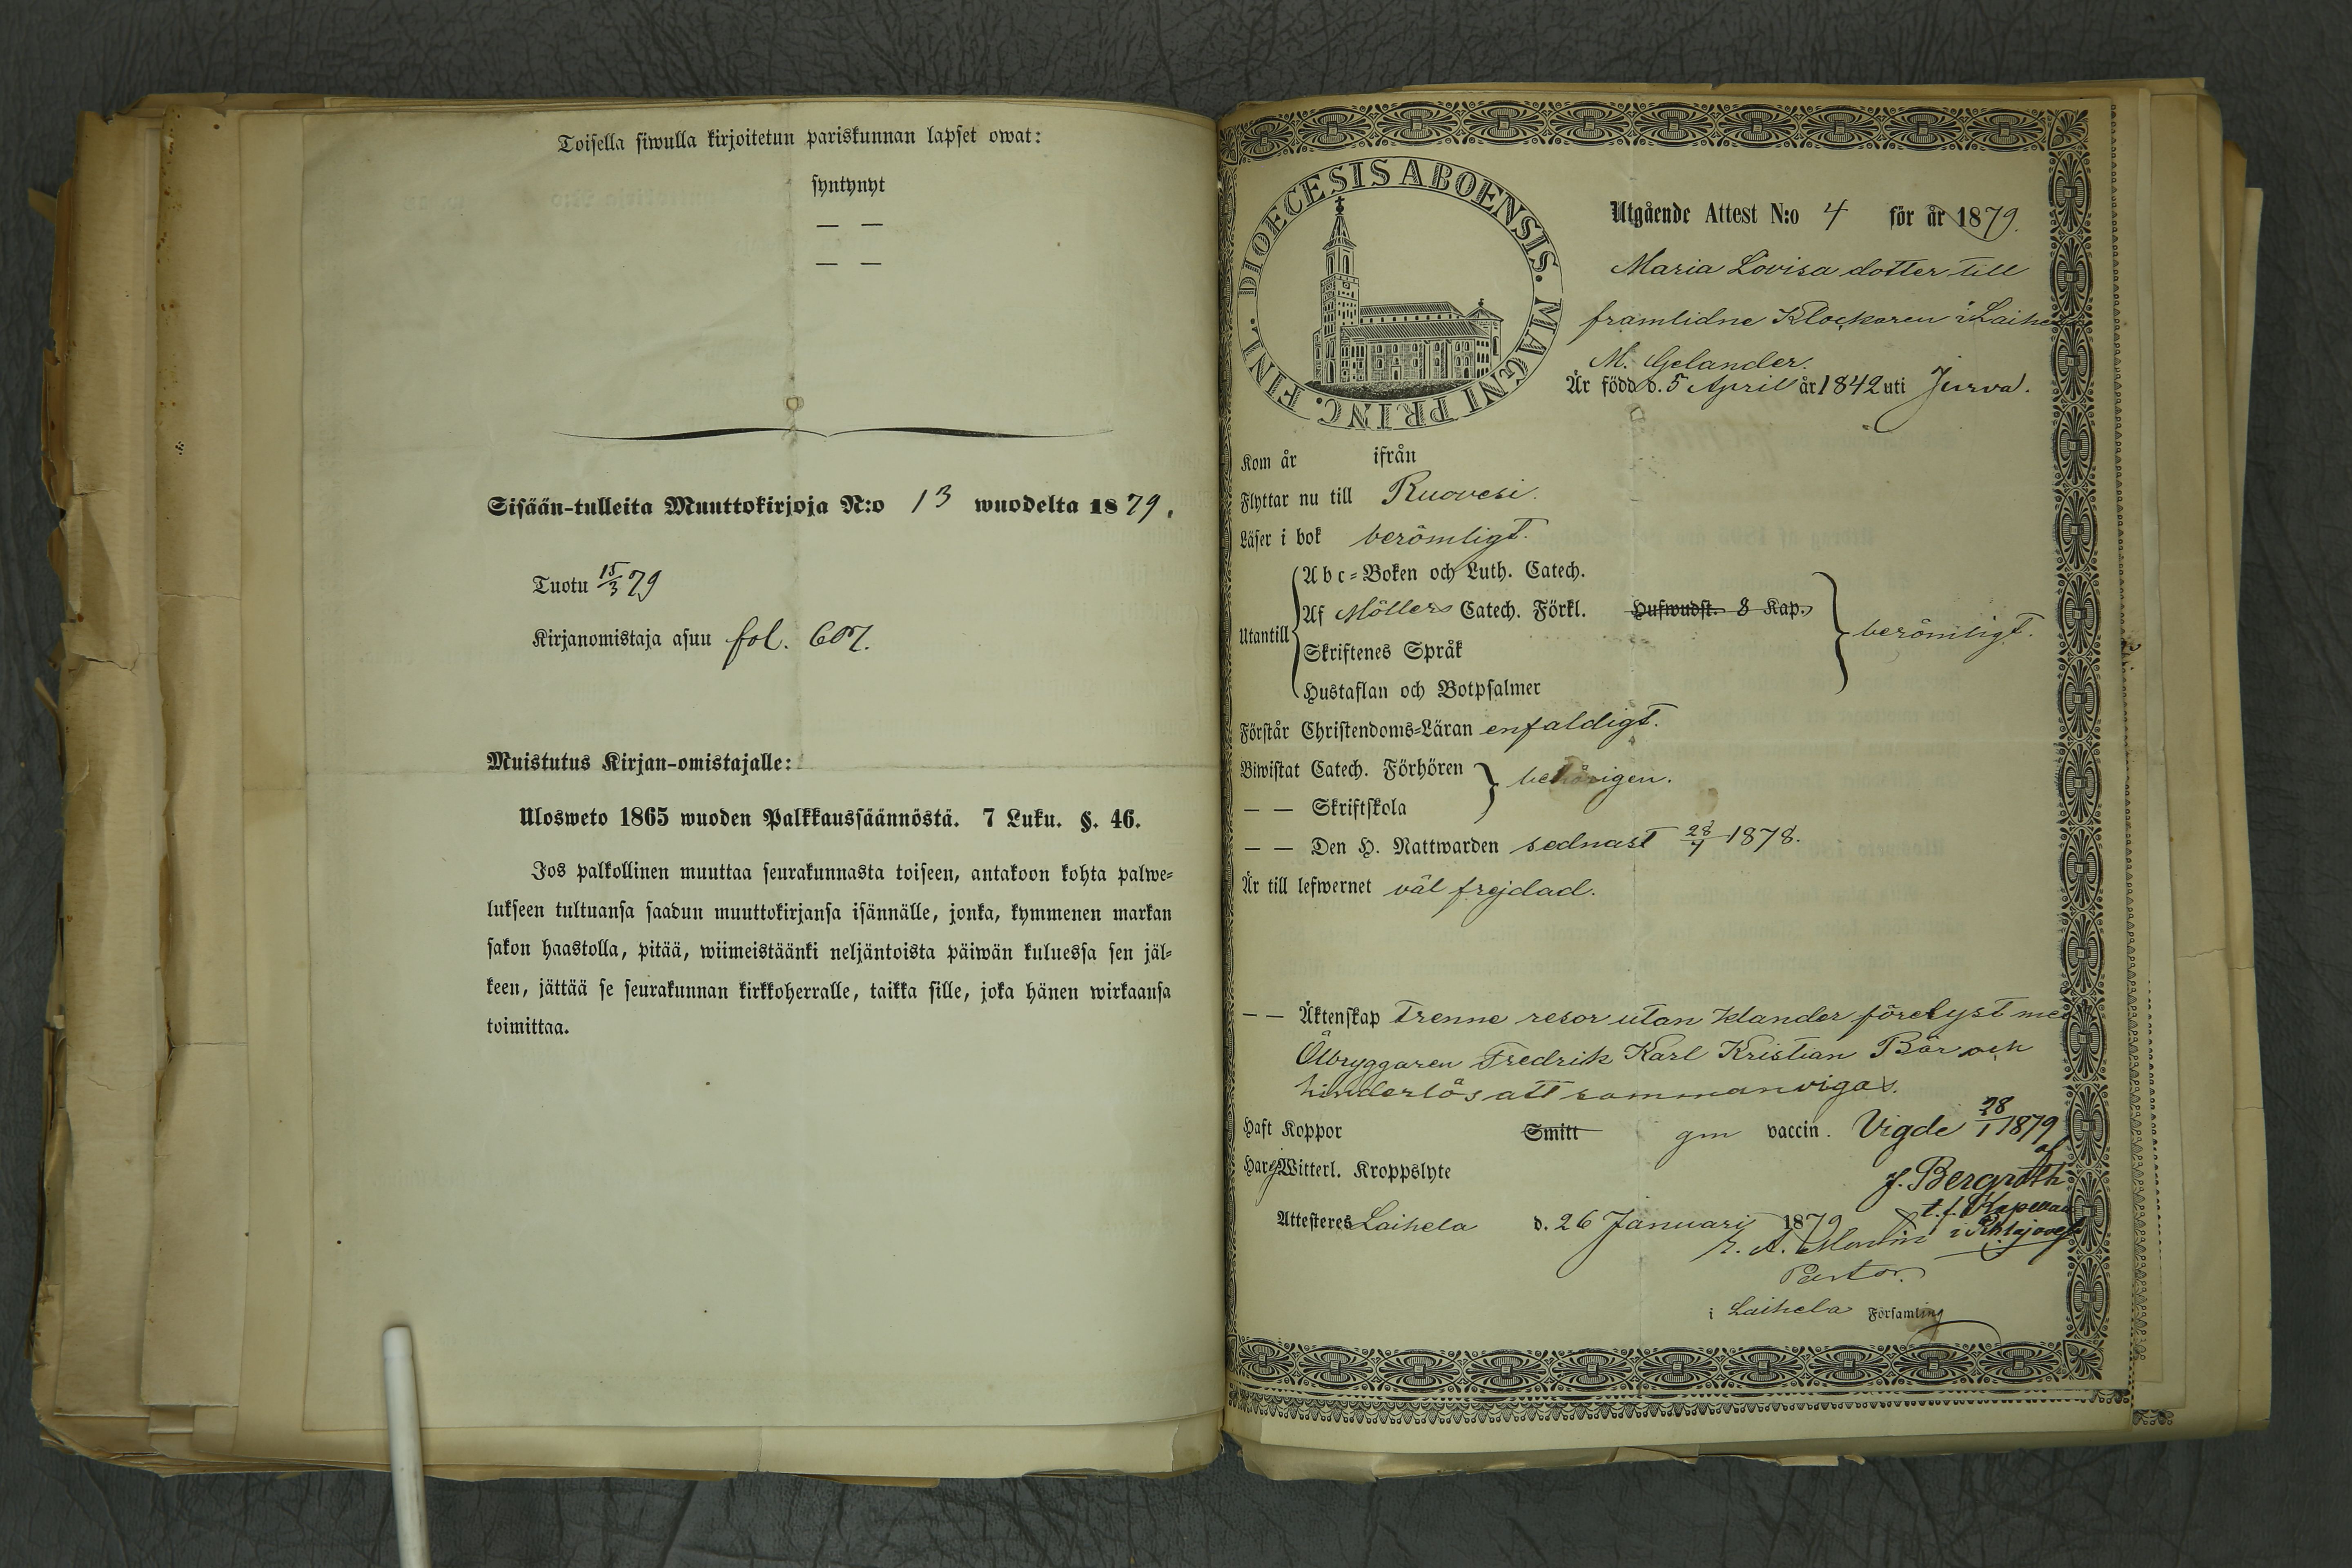 Toisella siwulla kirjoitetun pariskunnan lapset owat:
syntynyt
— —
— —
Sisään-tulleita Muuttokirjoja N:o 13 wuodelta 1879.
Tuotu 15/3 79
Kirjanomistaja asuu fol. 607.
Muistutus Kirjan-omistajalle:
Ulosweto 1865 wuoden Palkkaussäännöstä. 7 Luku. §. 46.
Jos palkollinen muuttaa seurakunnasta toiseen, antakoon kohta palwe-
lukseen tultuansa saadun muuttokirjansa isännälle, jonka, kymmenen markan
sakon haastolla, pitää, wiimeistäänki neljäntoista päiwän kuluessa sen jäl-
keen, jättää se seurakunnan kirkkoherralle, taikka sille, joka hänen wirkaansa
toimittaa.
DIOECESIS ABOENSIS. MAGNI PRINC. FINL.
Utgående Attest N:o 4 för år 1879.
Maria Lovisa dotter till
framlidne Klockaren i Laihela
M. Gelander.
Är född d. 5 April år 1842 uti Jurva.
Kom år ifrån
Flyttar nu till Ruovesi.
Läser i bok berömligt.
Utantill
Abc-Boken och Luth. Catech.
Af Möllers Catech. Förkl. Hufwudst. 8 Kap.
Skriftenes Språk
Hustaflan och Botpsalmer
berömligt.
Förstår Christendoms-Läran enfaldigt.
Biwistat Catech. Förhören
— — Skriftskola
behörigen.
— — Den H. Nattwarden sednast 28/7 1878.
Är till lefwernet väl frejdad.
— — Äktenskap trenne resor utan klander förelyst med
Ölbryggaren Fredrik Karl Kristian Bär och
hinderlös att sammanvigas.
Haft Koppor Smitt gm vaccin. Vigde 28/1 1879
af
Har ej Witterl. Kroppslyte
J. Bergroth
t.f. Kapellan
Attesteras Laihela d. 26 Januari 1879
Pastor.
i Laihela Församling